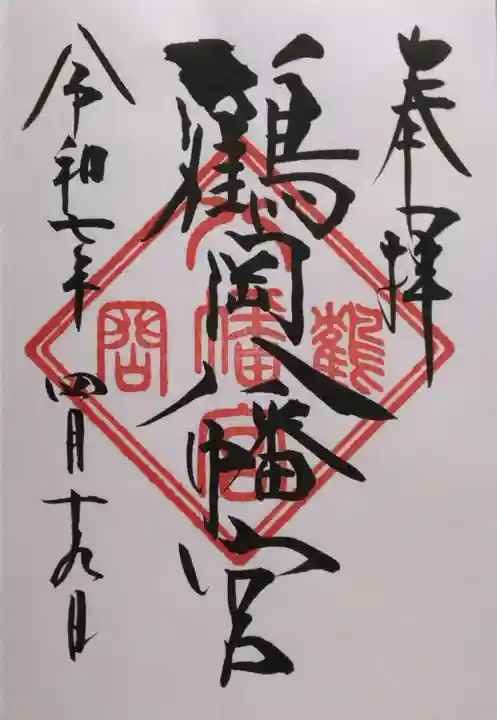 奉拝
鶴岡八幡宮
令和七年 四月十九日
鶴
八幡宮
岡